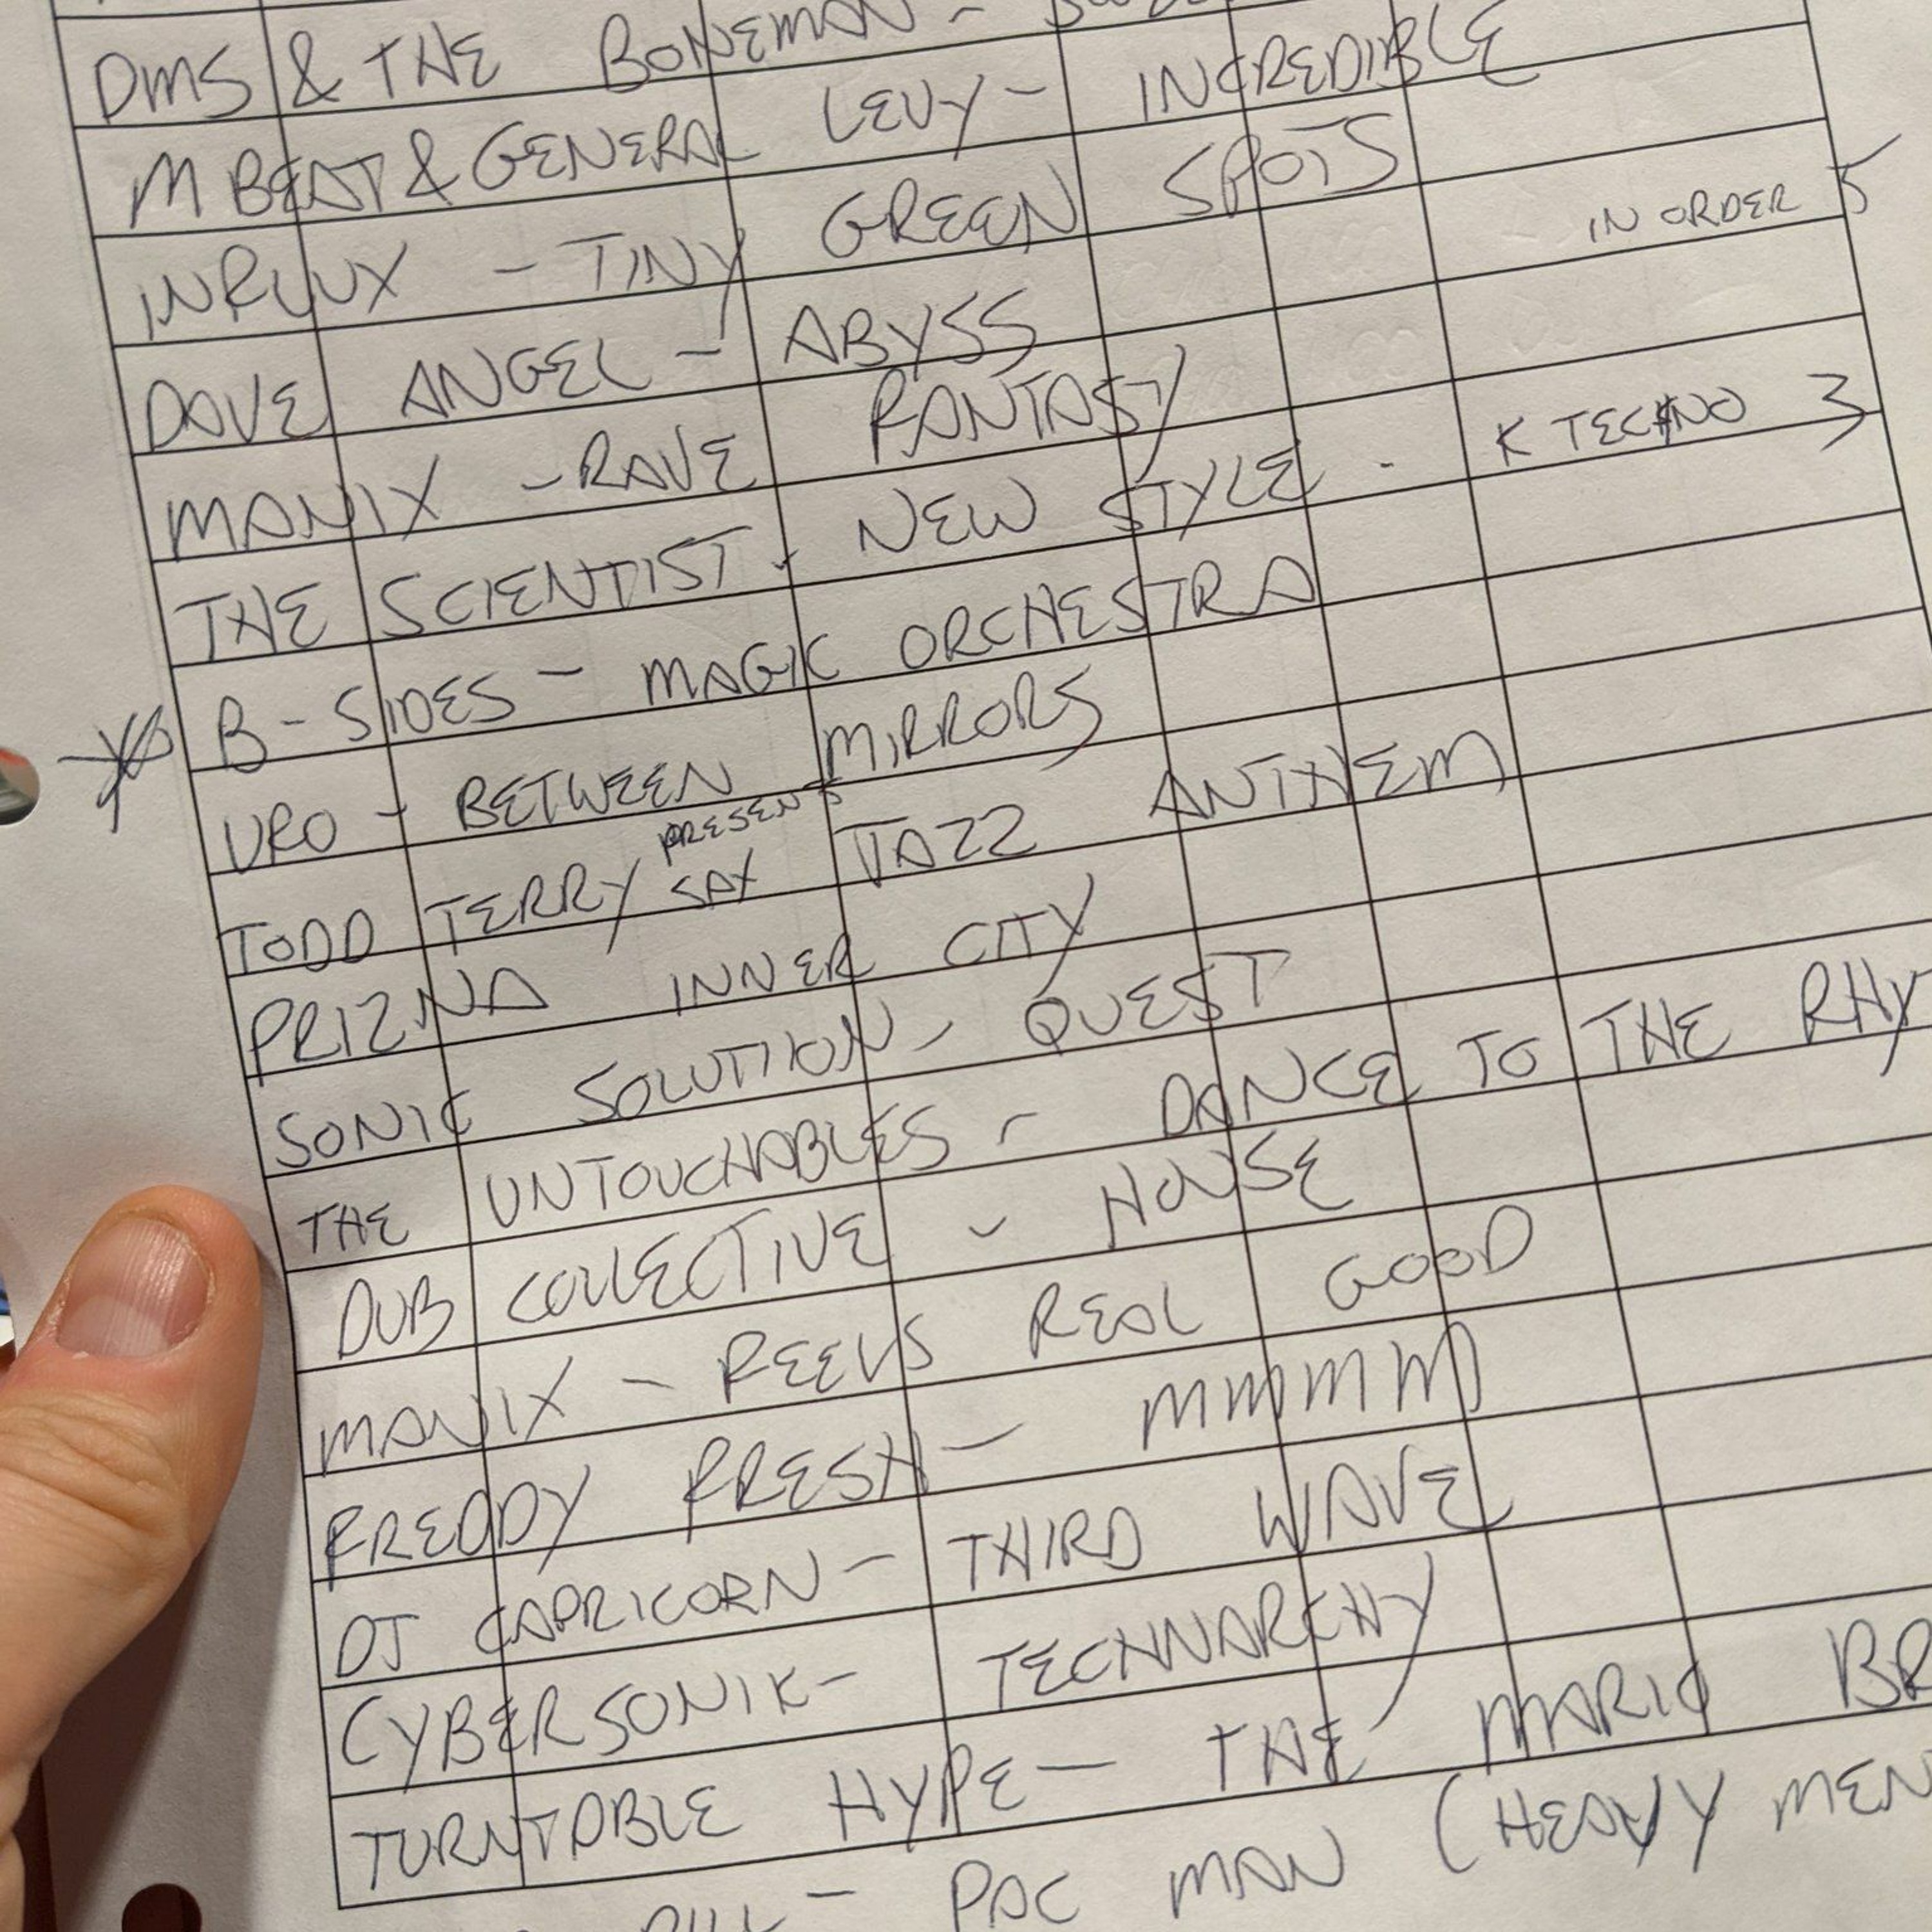 DMS & THE BONEMAN -
M BEAT & GENERAL LEVY - INCREDIBLE
INFLUX - TINY GREEN SPOTS
IN ORDER 5
DAVE ANGEL - ABYSS
MANIX - RAVE FANTASY
K TECHNO 3
THE SCIENTIST - NEW STYLE -
B-SIDES - MAGIC ORCHESTRA
URO - BETWEEN MIRRORS
TODD TERRY PRESENTS SAX JAZZ ANTHEM
PRIZNA INNER CITY
SONIC SOLUTION - QUEST
THE UNTOUCHABLES - DANCE TO THE RHY
DUB COLLECTIVE - HOUSE
MANIX - FEELS REAL GOOD
FREDDY FRESH - MMMM
DJ CAPRICORN - THIRD WAVE
CYBERSONIK - TECHNARCHY
TURNTABLE HYPE - THE MARIO BR
PILL - PAC MAN (HEAVY MEN